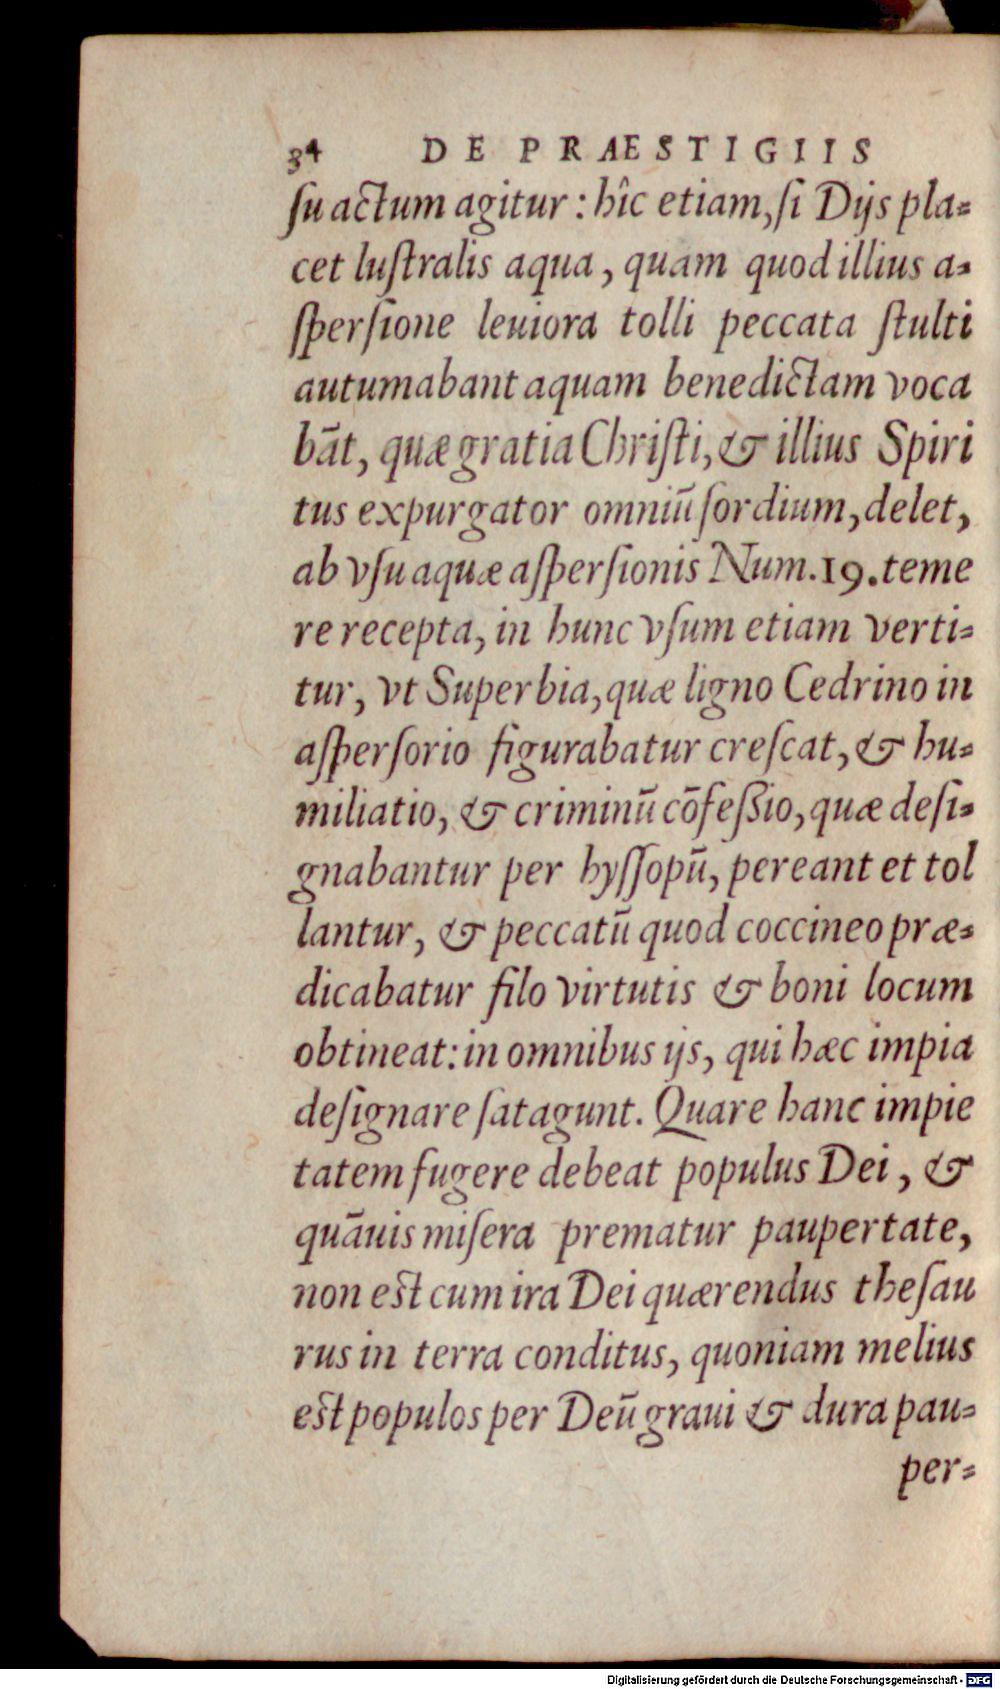 34 DE PRAESTIGIIS
ſu actum agitur : hîc etiam, ſi Dijs pla-
cet luſtralis aqua, quam quod illius a-
ſperſione leuiora tolli peccata ſtulti
autumabant aquam benedictam voca
bāt, quæ gratia Chriſti, & illius Spiri
tus expurgator omniū ſordium, delet,
ab vſu aquæ aſperſionis Num. 19. teme
re recepta, in hunc vſum etiam verti-
tur, vt Superbia, quæ ligno Cedrino in
aſperſorio figurabatur creſcat, & hu-
miliatio, & criminū cōfeßio, quæ deſi-
gnabantur per hyſſopū, pereant et tol
lantur, & peccatū quod coccineo præ-
dicabatur filo virtutis & boni locum
obtineat: in omnibus ijs, qui hæc impia
deſignare ſatagunt. Quare hanc impie
tatem fugere debeat populus Dei, &
quāuis miſera prematur paupertate,
non est cum ira Dei quærendus theſau
rus in terra conditus, quoniam melius
est populos per Deū graui & dura pau-
per-
Digitalisierung gefördert durch die Deutsche Forschungsgemeinschaft - DFG